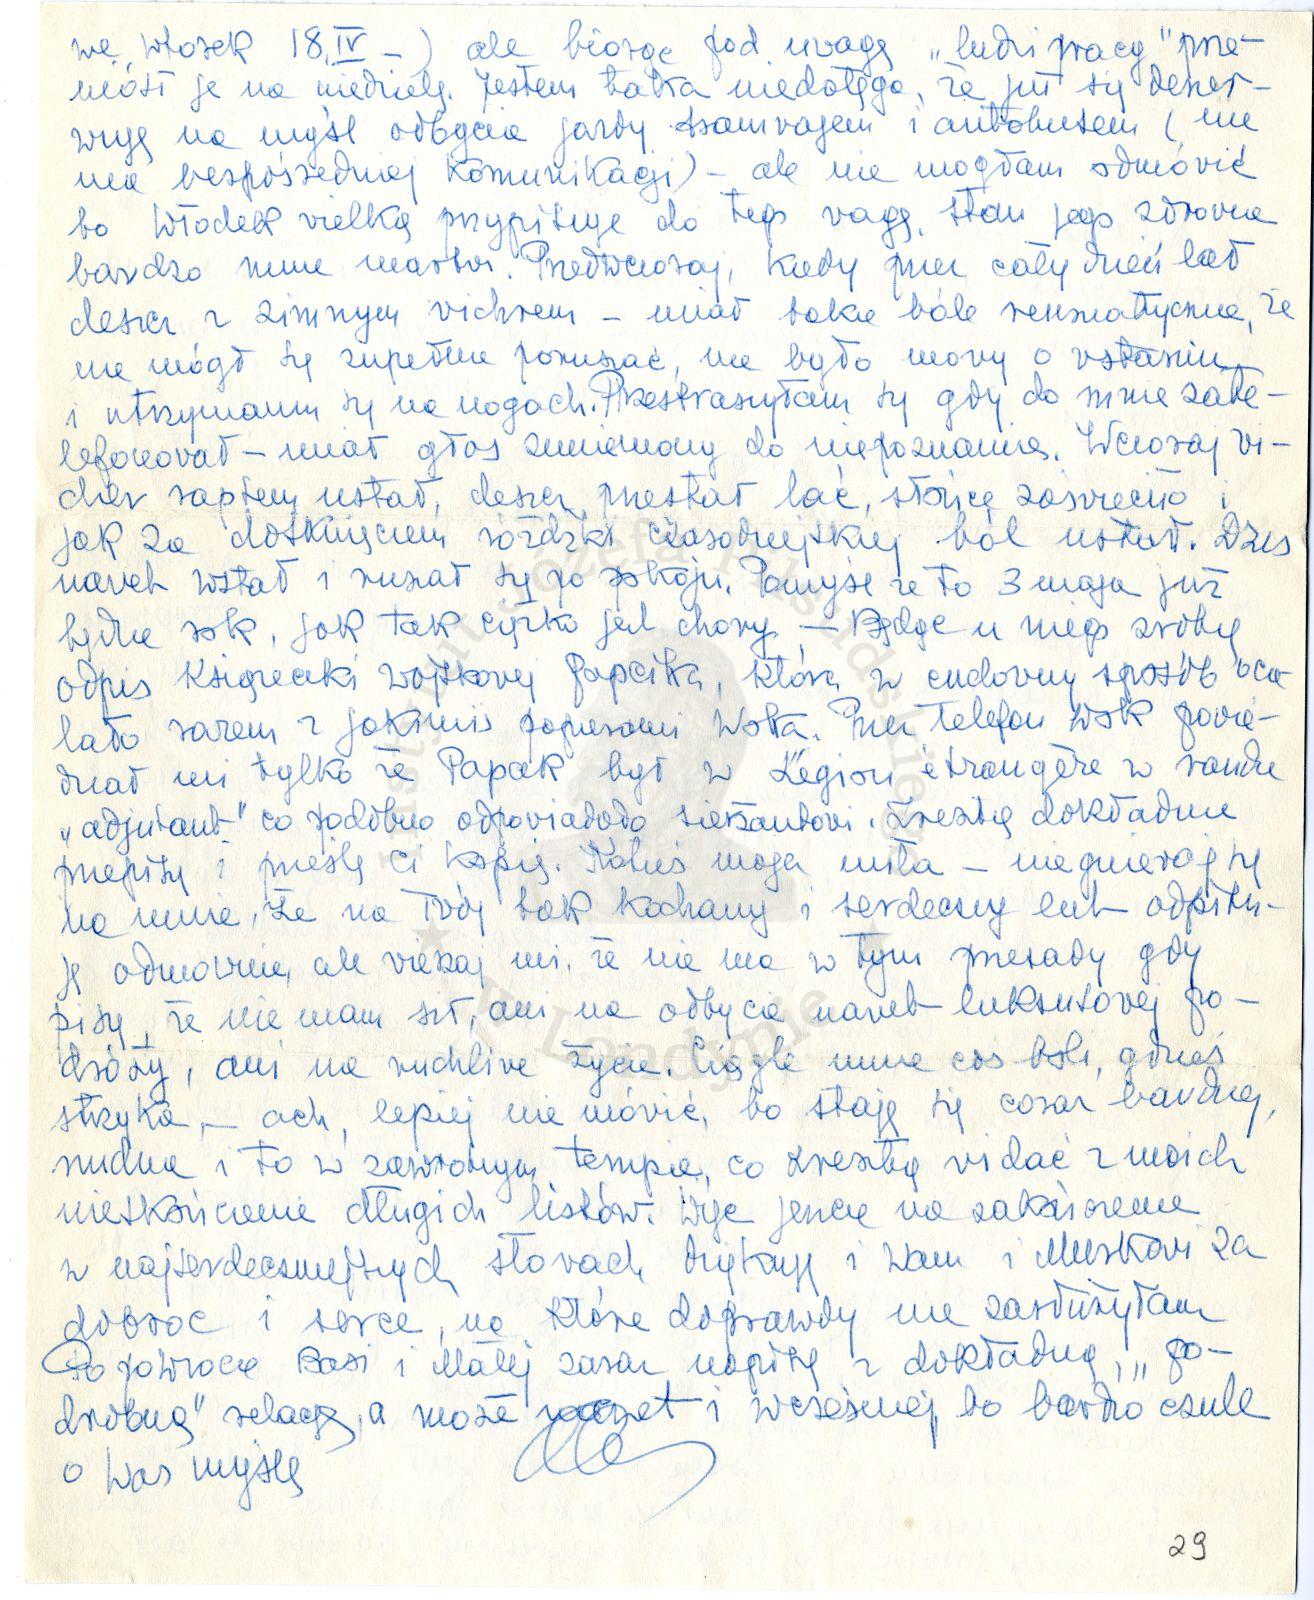 we wtorek 18.IV –) ale biorąc pod uwagę "ludzi pracy" prze-
niósł je na niedzielę. Jestem taka niedołęga, że już się dener-
wuję na myśl odbycia jazdy tramwajem i autobusem (nie
ma bezpośredniej komunikacji) – ale nie mogłam odmówić
bo Włodek wielką przypisuje do tego wagę. Stan jego zdrowia
bardzo mnie martwi. Przedwczoraj, kiedy przez cały dzień lał
deszcz z zimnym wichrem – miał takie bóle reumatyczne, że
nie mógł się zupełnie poruszać, nie było mowy o wstaniu
i utrzymaniu się na nogach. Przestraszyłam się gdy do mnie zate-
lefonował – miał głos zmieniony do niepoznania. Wczoraj wi-
cher raptem ustał, deszcz przestał lać, słońce zaświeciło i
jak za dotknięciem różdżki czarodziejskiej ból ustał. Dziś
nawet wstał i ruszał się po pokoju. Pomyśl że to 3 maja już
będzie rok, jak tak ciężko jest chory – Będąc u niego zrobię
odpis książeczki wojskowej Papcika, która w cudowny sposób oca-
lała razem z jakimiś papierami Wołka. Przez telefon Wołk powie-
dział mi tylko że Papcik był w Légion étrangère w randze
"adjutant" co podobno odpowiadało sierżantowi. Zresztą dokładnie
przepiszę i prześlę Ci kopię. moja miła – nie gniewaj się
na mnie, że na Twój tak kochany i serdeczny list odpisu-
ję odmownie, ale wierzaj mi, że nie ma w tym przesady gdy
piszę, że nie mam sił, ani na odbycie nawet luksusowej po-
dróży, ani na ruchliwe życie. Ciągle mnie coś boli, gdzieś
strzyka, – ach, lepiej nie mówić, bo staję się coraz bardziej
nudna i to w zawrotnym tempie, co zresztą widać z moich
nieskończenie długich listów. Więc jeszcze na zakończenie
w najserdeczniejszych słowach dziękuję i Wam i za
dobroć i serce, na które doprawdy nie zasłużyłam
Po powrocie Basi i Małej zaraz napiszę z dokładną, "po-
drobną" relację, a może nawet i wcześniej, bo bardzo czule
o Was myślę
29
Instytut Józefa Piłsudskiego
w Londynie